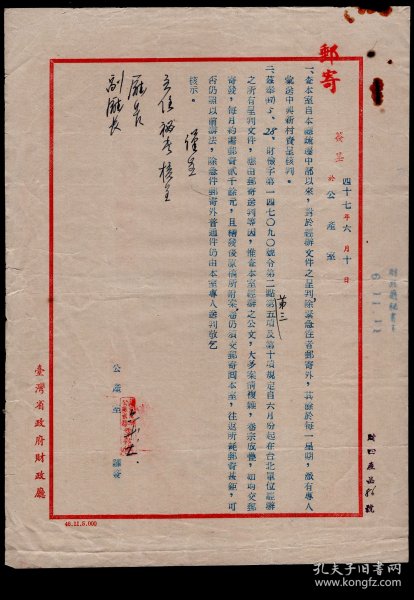 郵寄
簽呈 於 公產室
四十七年六月十日
財四產品 號
一、查本室自本廳疏遷中部以來，對於經辦文件之呈判，除緊急注者郵寄外，其餘於每一星期，派有專人
彙送中興新村貴呈核判。
二、茲奉 5、28、財檢字第一四七〇九〇號令第二點第五項及第十項規定自六月份起在台北單位經辦
第三
之所有呈判文件，應由郵寄遞判等因，惟查本室經辦之公文，大多案情複雜，卷宗成疊，如均交郵
寄發，每月約需郵寄貳千餘元，且繕發後原稿所附案卷仍須交郵寄回本室，往返所耗郵寄甚鉅，可
否仍照以前辦法，除急件郵寄外普通件仍由本室專人送判敬乞
核示。
謹呈
主任秘書 核呈
廳長
副廳長
公產室 謹簽
臺灣省政府財政廳
46.11.5,000
孔夫子旧书网
www.kongfz.com